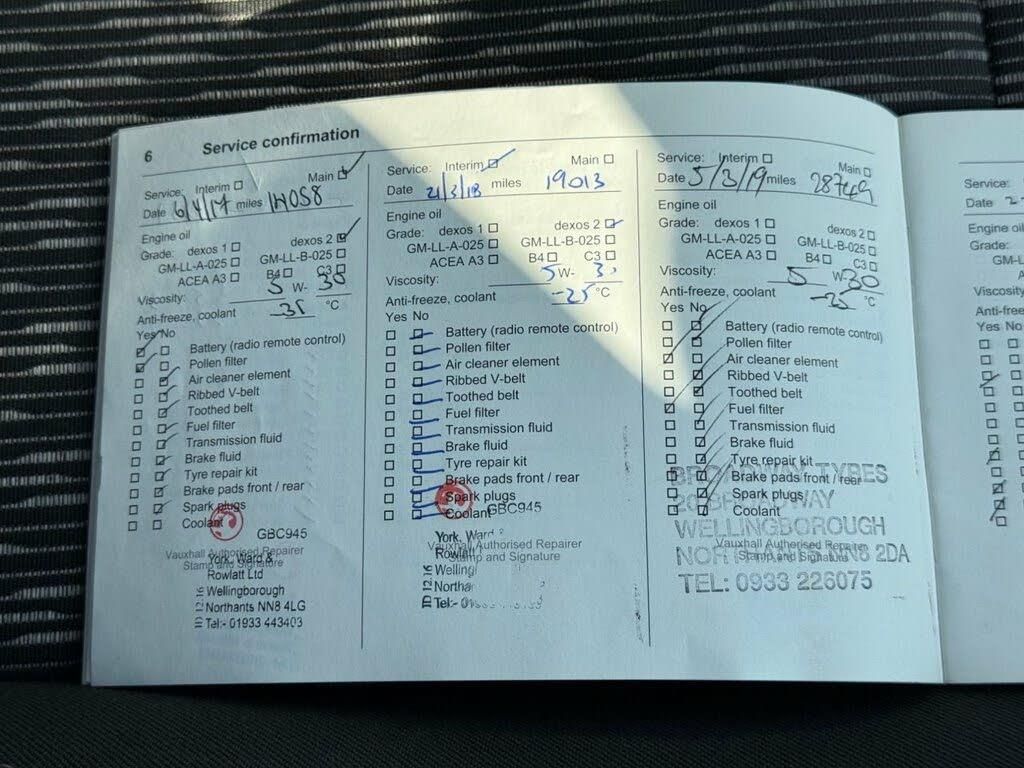 6 Service confirmation
Service: Interim Main
Date 6/4/17 miles
Engine oil
Grade: dexos 1 dexos 2
GM-LL-A-025 GM-LL-B-025
ACEA A3 B4 C3
Viscosity: 5 W- 30
Anti-freeze, coolant -35 °C
Yes No
Battery (radio remote control)
Pollen filter
Air cleaner element
Ribbed V-belt
Toothed belt
Fuel filter
Transmission fluid
Brake fluid
Tyre repair kit
Brake pads front / rear
Spark plugs
Coolant
GBC945
Vauxhall Authorised Repairer
Stamp and Signature
York, Ward &
Rowlatt Ltd
Wellingborough
Northants NN8 4LG
Tel:- 01933 443403
ID 12 16
Service: Interim Main
Date 21/3/18 miles 19013
Engine oil
Grade: dexos 1 dexos 2
GM-LL-A-025 GM-LL-B-025
ACEA A3 B4 C3
Viscosity: 5 W- 30
Anti-freeze, coolant -25 °C
Yes No
Battery (radio remote control)
Pollen filter
Air cleaner element
Ribbed V-belt
Toothed belt
Fuel filter
Transmission fluid
Brake fluid
Tyre repair kit
Brake pads front / rear
Spark plugs
Coolant
GBC945
Vauxhall Authorised Repairer
Stamp and Signature
York, Ward
Rowlatt
Welling
Northa
Tel:-
ID 12.16
Service: Interim Main
Date 5/3/19 miles
Engine oil
Grade: dexos 1 dexos 2
GM-LL-A-025 GM-LL-B-025
ACEA A3 B4 C3
Viscosity: 5 W- 30
Anti-freeze, coolant -25 °C
Yes No
Battery (radio remote control)
Pollen filter
Air cleaner element
Ribbed V-belt
Toothed belt
Fuel filter
Transmission fluid
Brake fluid
Tyre repair kit
Brake pads front / rear
Spark plugs
Coolant
Vauxhall Authorised Repairer
Stamp and Signature
BROADWAY TYRES
BROADWAY
WELLINGBOROUGH
2DA
TEL: 0933 226075
Service:
Date
Engine oil
Grade:
Viscosity
Anti-free
Yes No